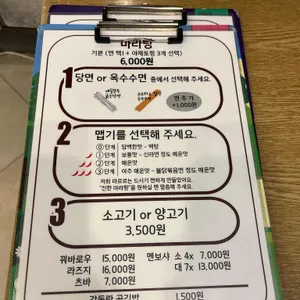 마라탕
기본 (면 택1 + 야채토핑 3개 선택)
6,000원
1 당면 or 옥수수면 중에서 선택해 주세요.
면 추가
+1,000원
2 맵기를 선택해 주세요.
0단계 담백한맛 – 백탕
1단계 보통맛 – 신라면 정도 매운맛
2단계 매운맛
3단계 아주 매운맛 – 불닭볶음면 정도 매운맛
저희 마르르는 드시기 편하게 만들었어요.
"진한 마라탕"을 원하실 땐 말씀해 주세요.
3 소고기 or 양고기
3,500원
꿔바로우 15,000원 멘보샤 소 4x 7,000원
라즈지 16,000원 대 7x 13,000원
츠바 7,000원
공기밥 1,500원